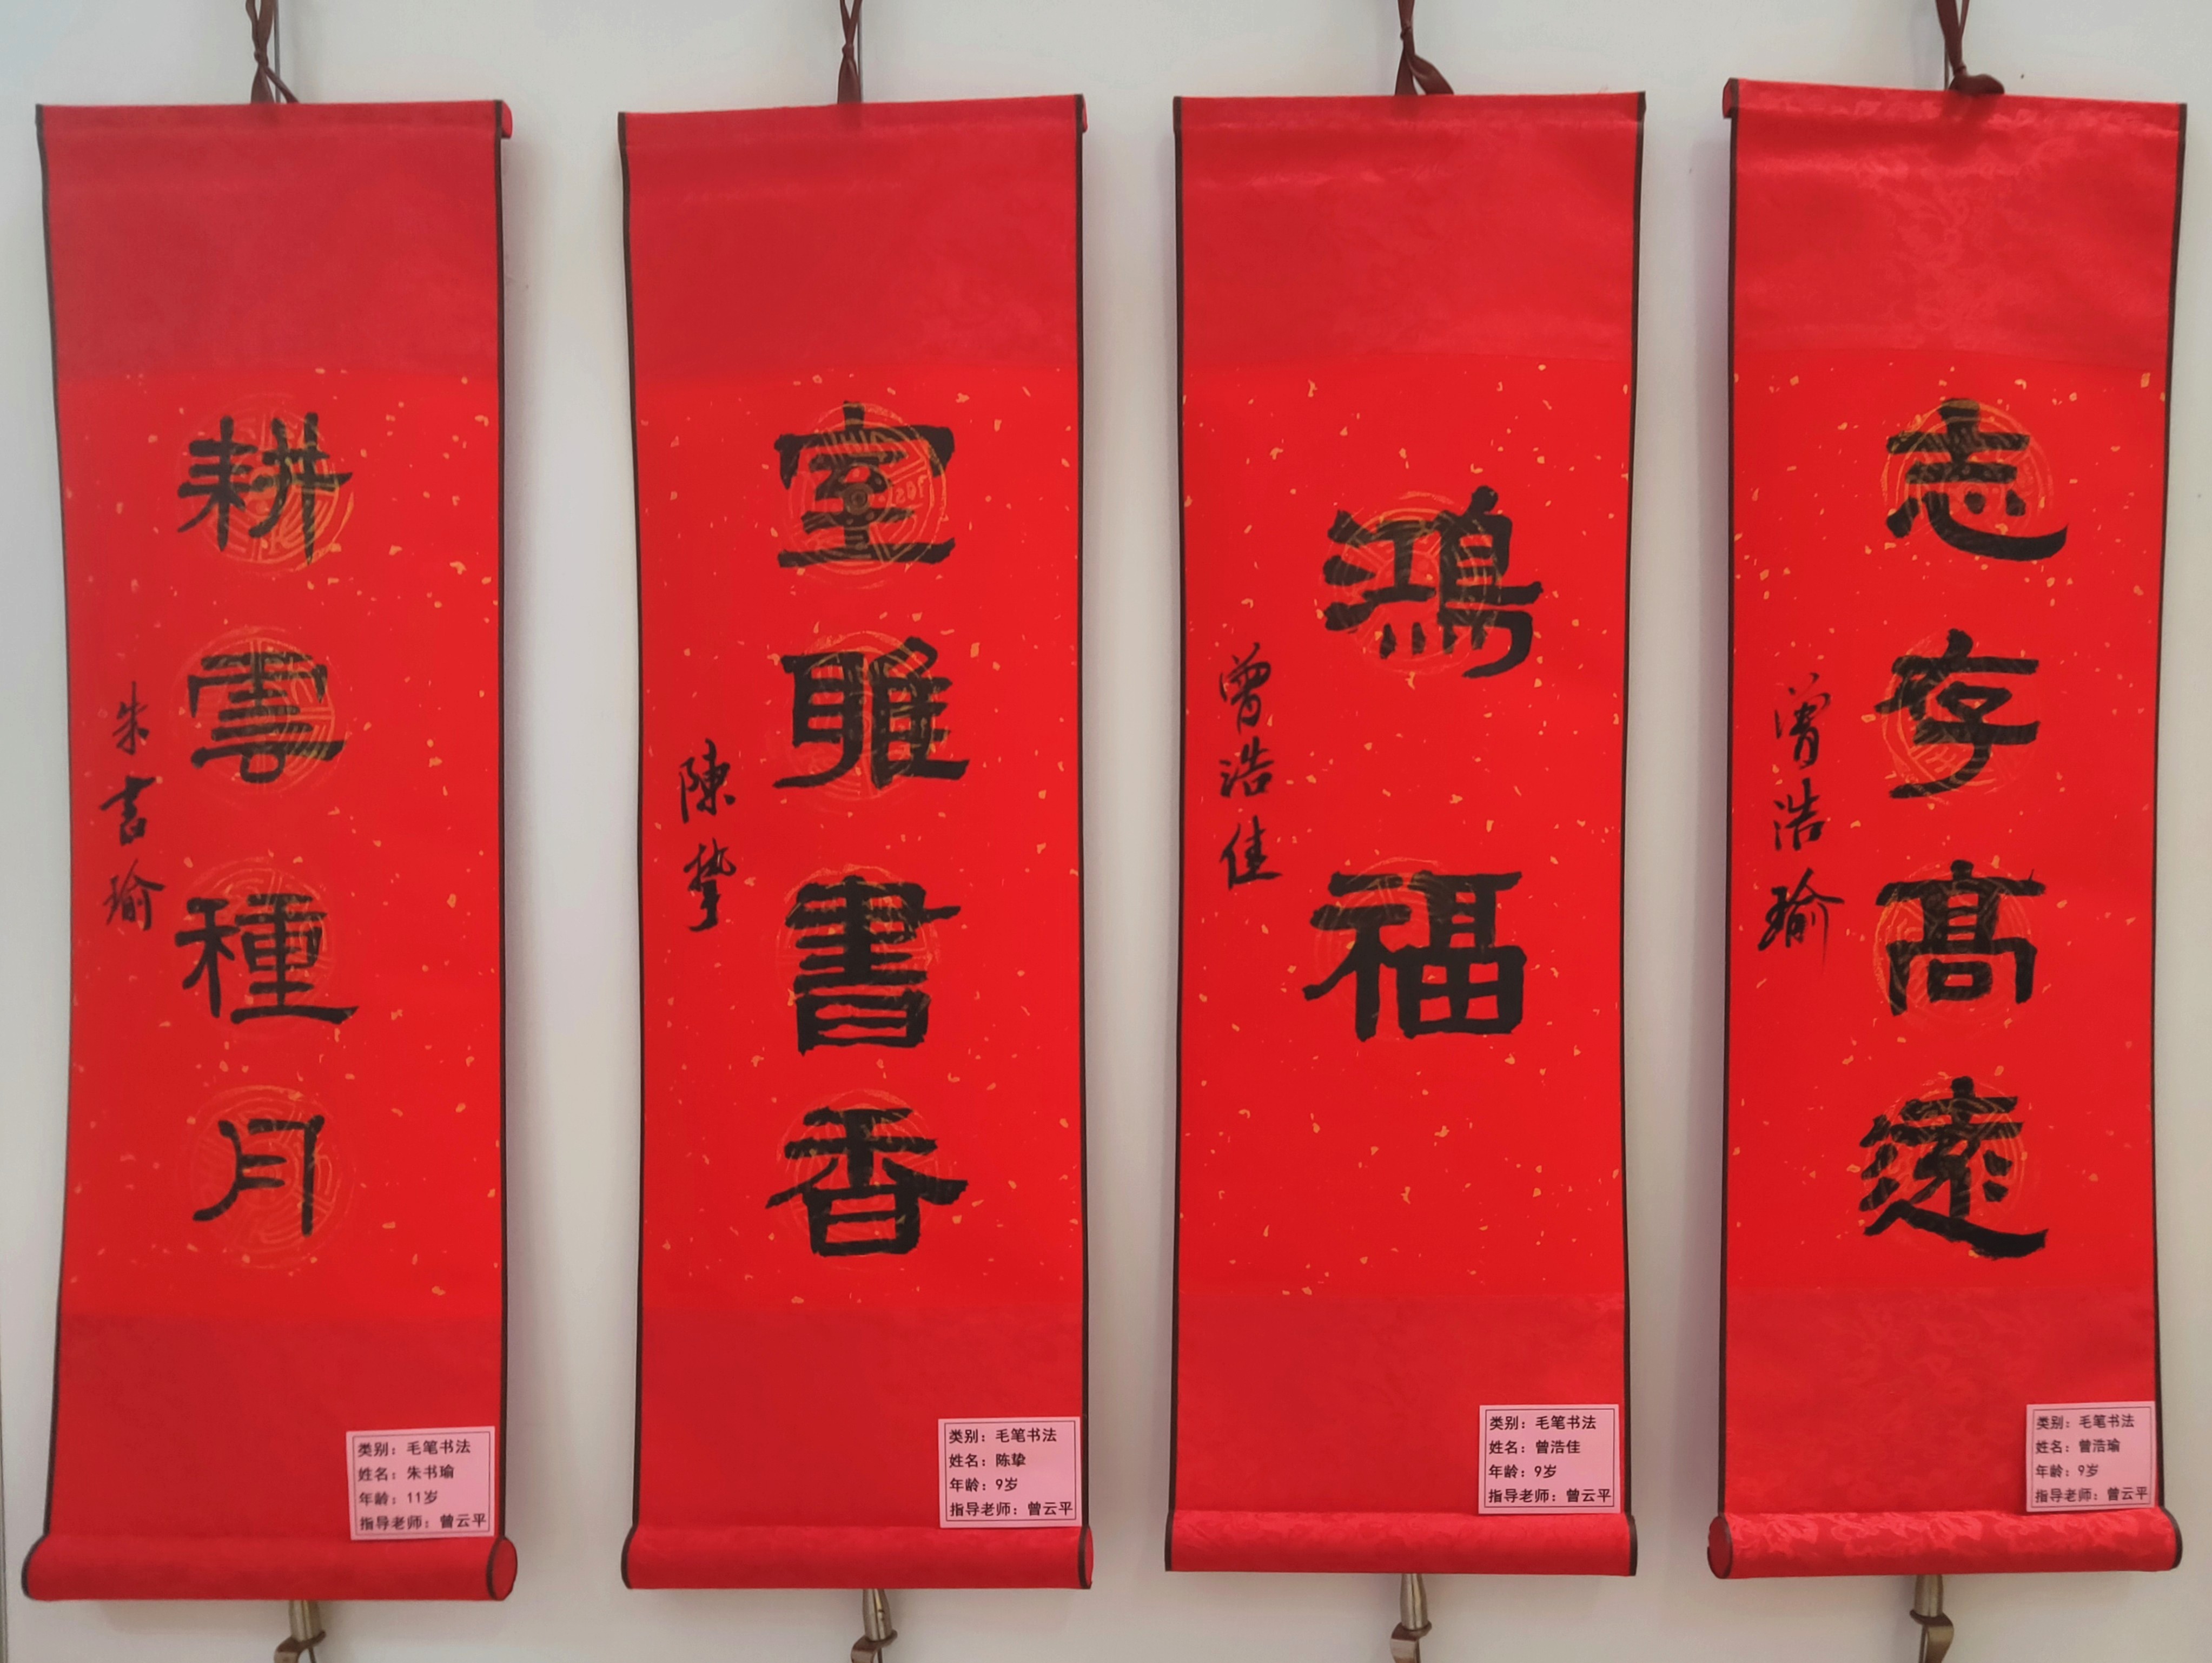 耕雲種月
朱書瑜
类别：毛笔书法
姓名：朱书瑜
年龄：11岁
指导老师：曾云平
室雅書香
陳摯
类别：毛笔书法
姓名：陈挚
年龄：9岁
指导老师：曾云平
鴻福
曾浩佳
类别：毛笔书法
姓名：曾浩佳
年龄：9岁
指导老师：曾云平
志存髙遠
曾浩瑜
类别：毛笔书法
姓名：曾浩瑜
年龄：9岁
指导老师：曾云平